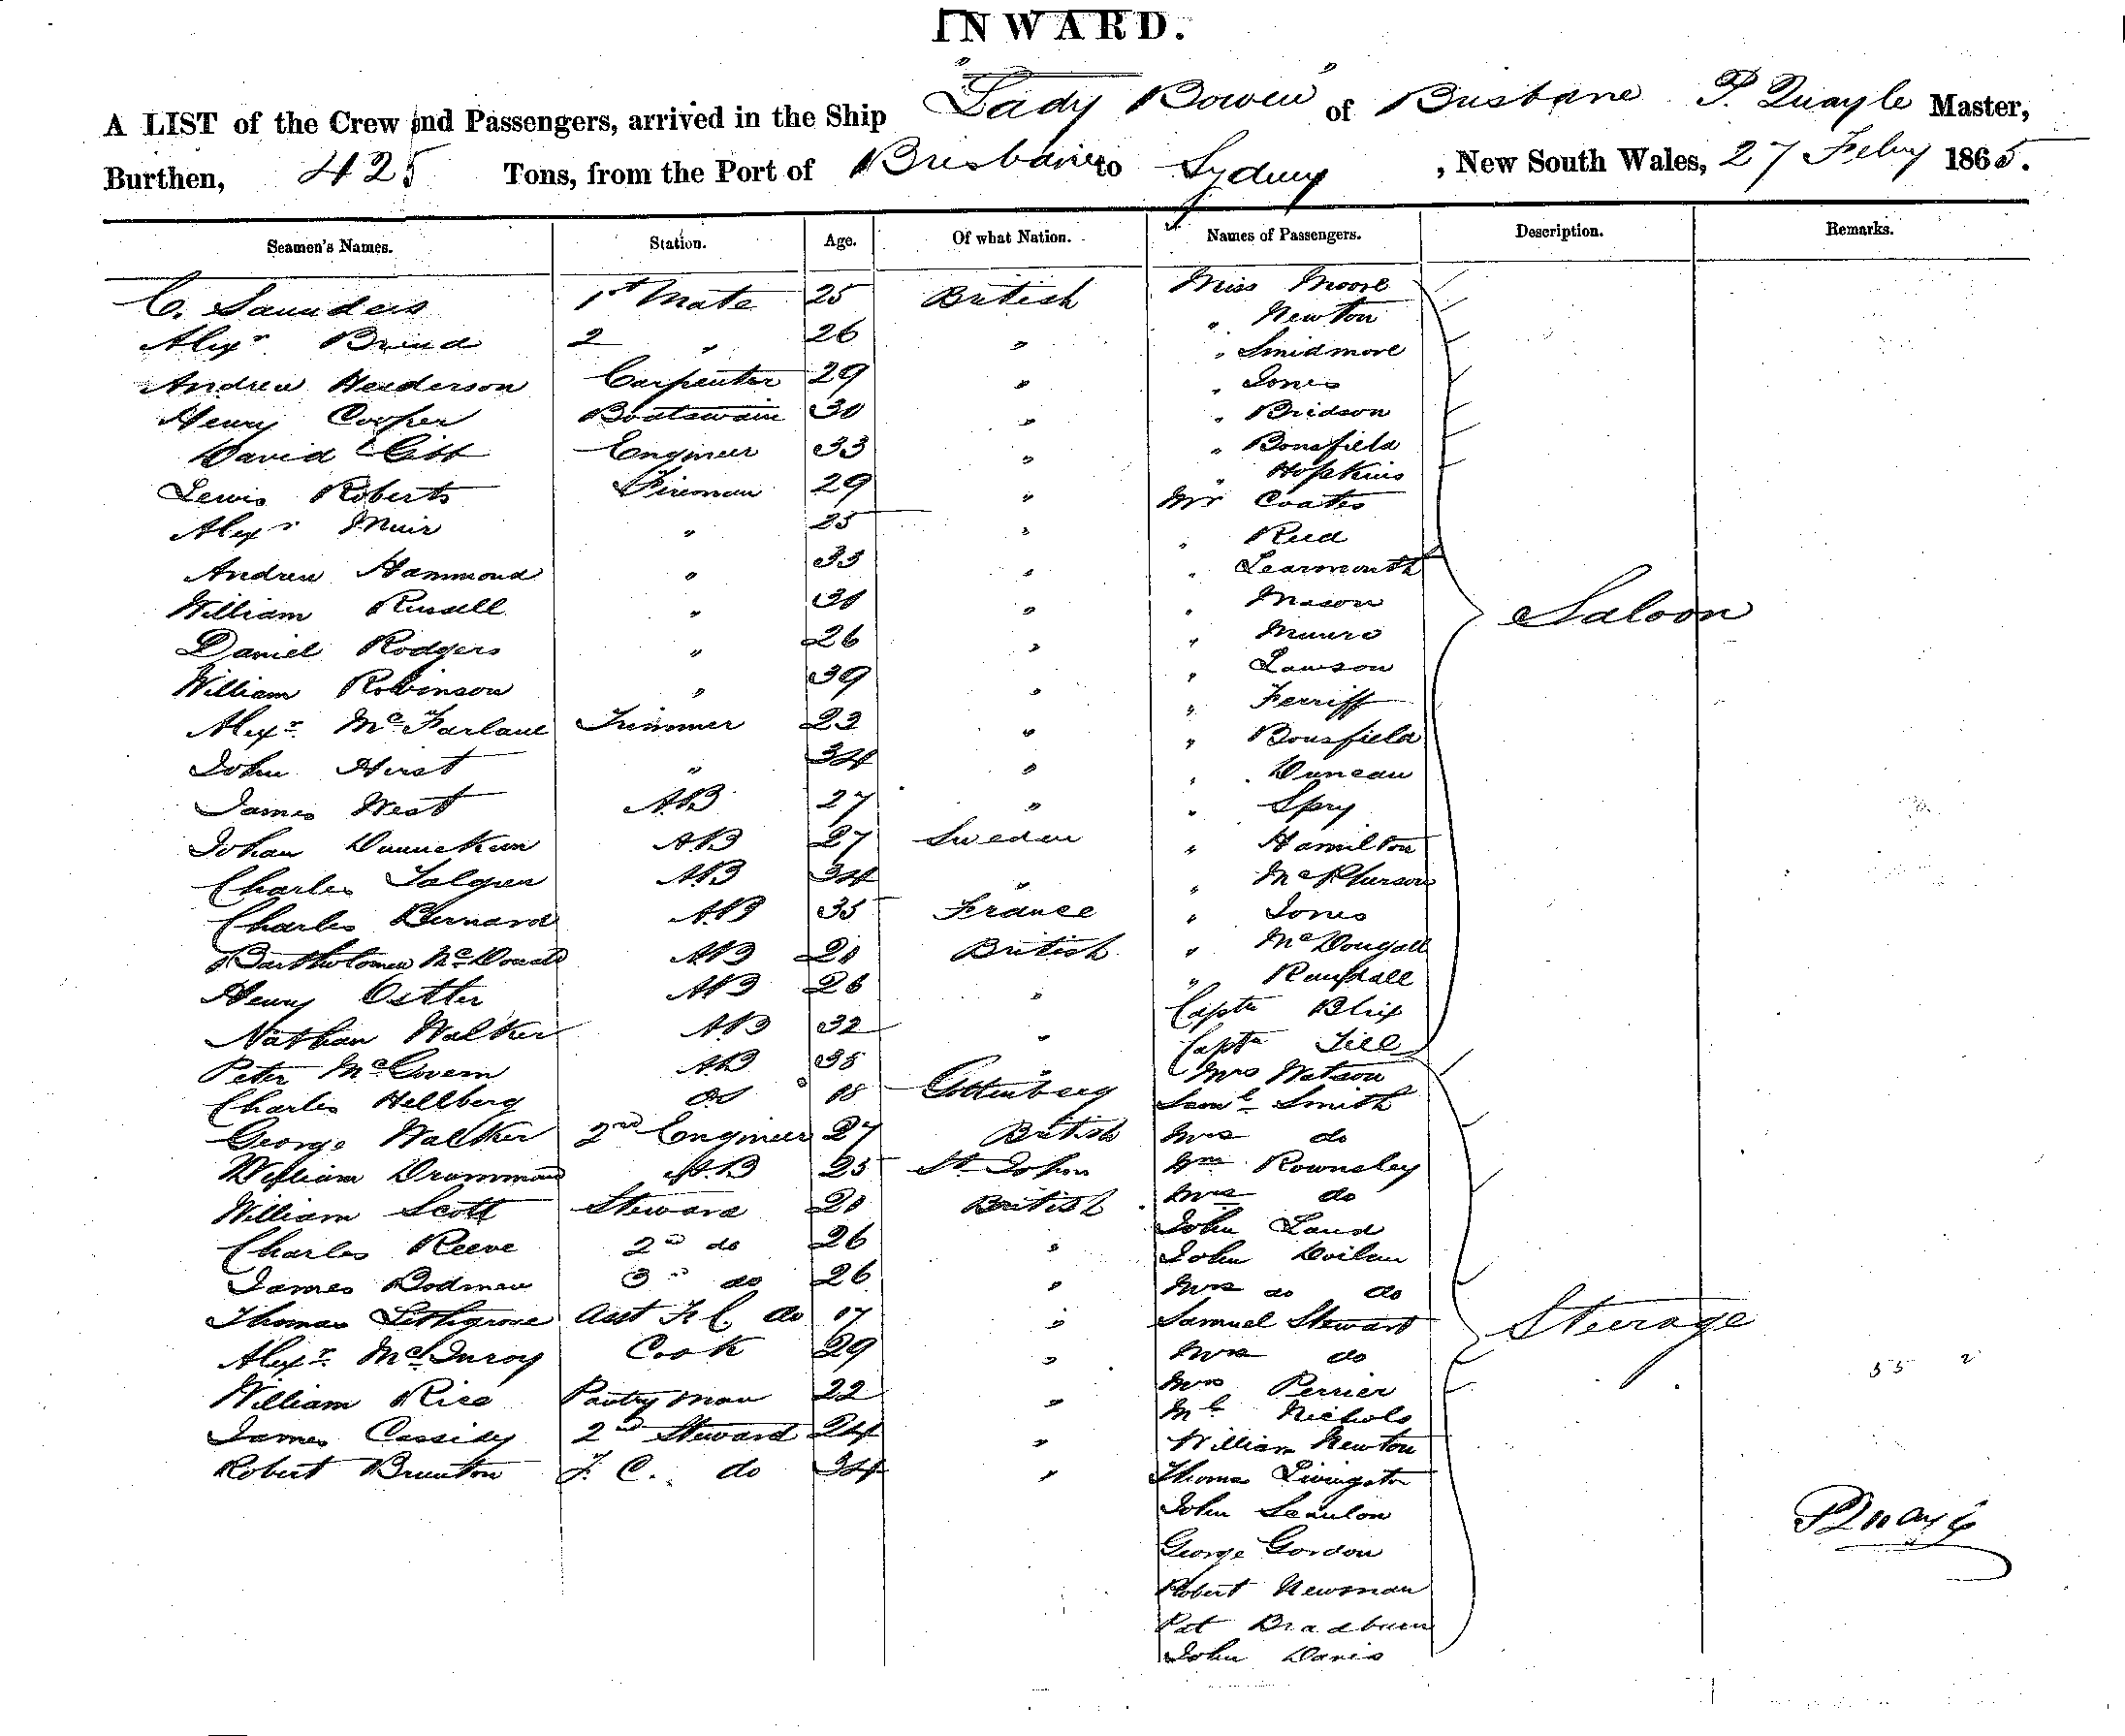 INWARD.
A LIST of the Crew and Passengers, arrived in the Ship "Lady Bowen" of Brisbane P. Quayle Master,
Burthen, 425 Tons, from the Port of Brisbane to Sydney, New South Wales, 27 Feby 1865.
Seamen's Names. Station. Age. Of what Nation. Names of Passengers. Description. Remarks.
C. Saunders 1st Mate 25 British Miss Moore
" Newton
Alexr 2 " 26 "
" Smidmore
Andrew Henderson Carpenter 29 "
" Jones
Henry Cooper Boatswain 30 "
" Bridson
David Engineer 33 "
" Bonsfield
" Hopkins
Lewis Roberts Fireman 29 "
Mr Coates
Alexr Muir " 25 "
" Reid
Andrew Hammond " 33 "
" Learmonth
William Russell " 30 "
" Mason
Saloon
Daniel Rodgers " 26 "
" Munro
" Lawson
William Robinson " 39 "
" Ferriff
Alexr McFarlane Trimmer 23 "
" Bousfield
John Hirst " 34 "
" Duncan
James West AB 27 "
" Spry
Johan AB 27 Sweden
" Hamilton
Charles Talgren AB 34 "
" McPherson
Charles Bernard AB 35 France
" Jones
Bartholomew McDonald AB 20 British
" McDougall
Henry Ostler AB 26 "
" Randall
Captn Blix
Nathan Walker AB 32 "
Captn Till
Peter McGovern AB 35 "
Mrs Watson
Charles Hellberg OS 18 Gottenberg
Saml Smith
George Walker 2nd Engineer 27 British
Mrs do
William Drummond AB 25 St John
Wm Rownsley
William Scott Steward 20 British
Mrs do
John Land
Charles Reeve 2nd do 26 "
John Doilan
James Bodman 3rd do 26 "
Mrs do do
Thomas Lethgrove Asst F C do 17 "
Samuel Stewart
Steerage
Alexr McInroy Cook 29 "
Mrs do
William Rice Pantry man 22 "
Mrs Perrier
55 2
Nichols
James Cassidy 2nd Steward 24 "
William Newton
Robert Brunton F. C. do 34 "
Thomas Livingston
John Scanlon
P Quayle
George Gordon
Robert Newman
Pat Bradburn
John Davis